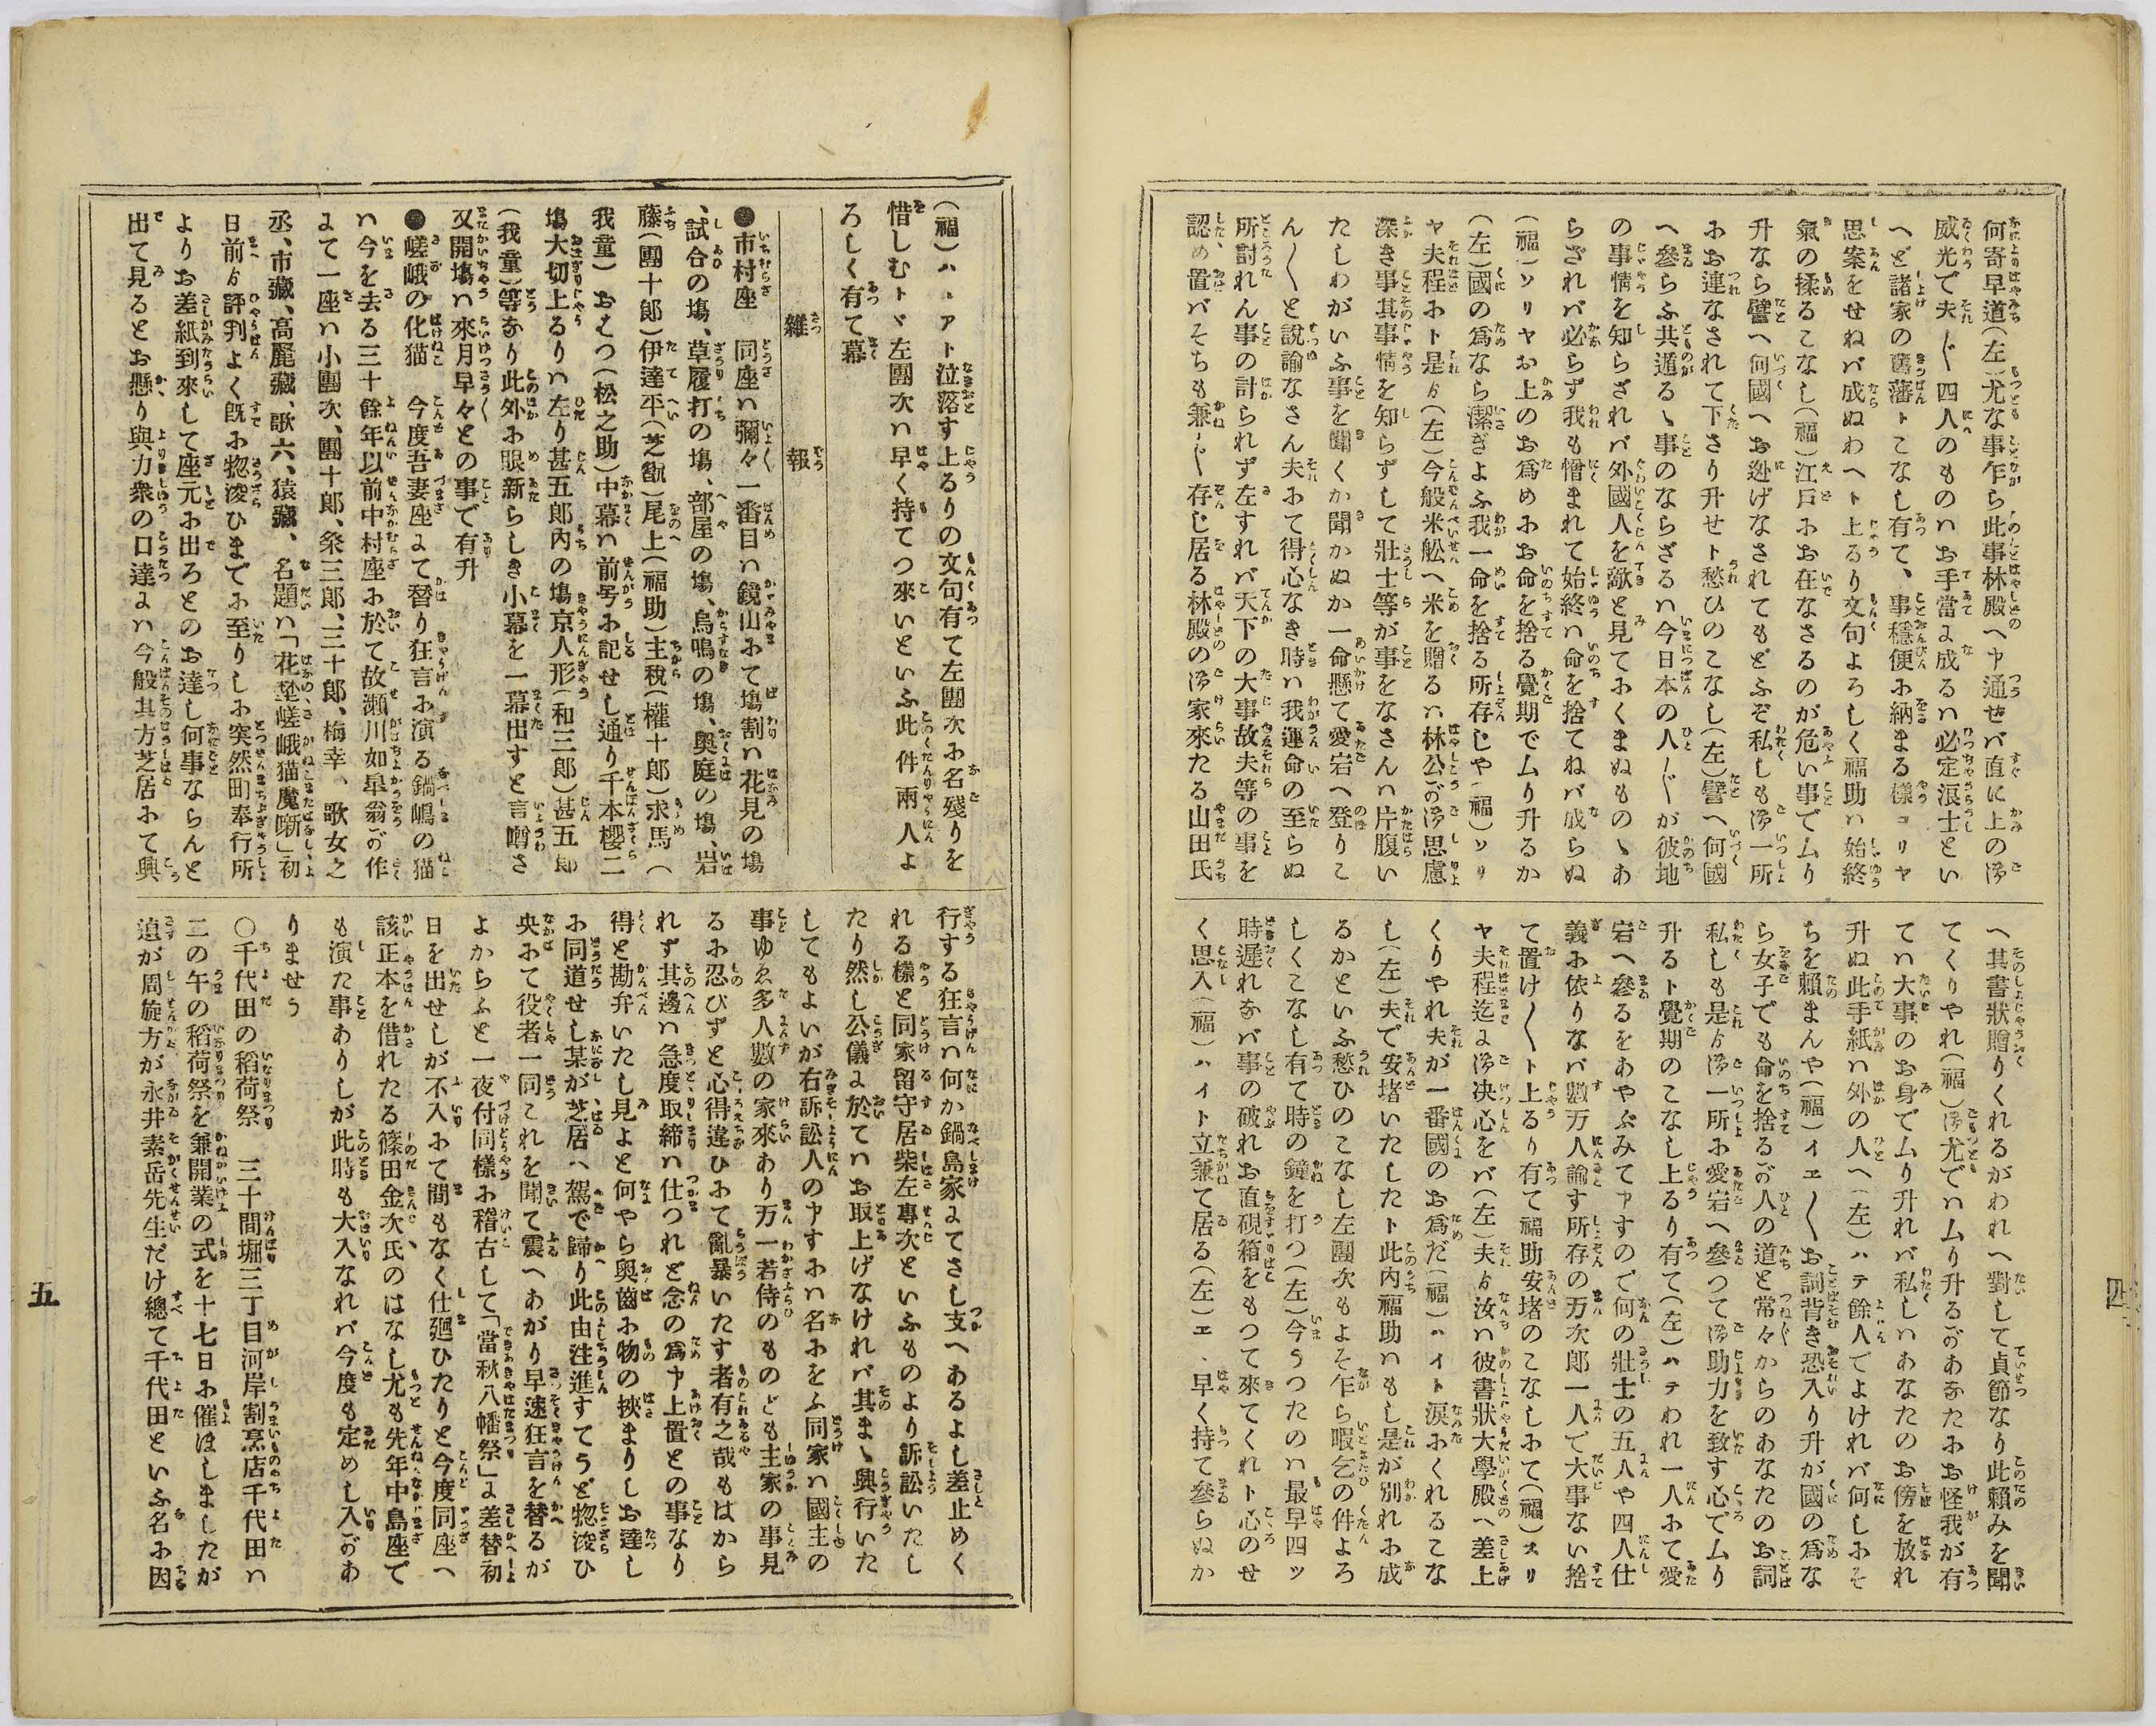 何寄早道(左)尤な事乍ら此事林殿へ申通せバ直に上の御
威光で夫〳〵四人のものハお手當よ成るハ必定浪士とい
へど諸家の舊藩トこなし有て、事穩便に納まる樣コリヤ
思案をせねバ成ぬわへト上るり文句よろしく福助ハ始終
氣の揉るこなし(福)江戸にお在なさるのが危い事でムり
升なら譬へ何國へお逃げなされてもどふぞ私しも御一所
にお連なされて下さり升せト愁ひのこなし(左)譬へ何國
へ參らふ共通るゝ事のならざるハ今日本の人〴〵が彼地
の事情を知らざれバ外國人を敵と見てにくまぬものゝあ
らざれバ必らず我も憎まれて始終ハ命を捨てねバ成らぬ
(福)ソリヤお上のお爲めにお命を捨る覺期でムり升るか
(左)國の爲なら潔ぎよふ我一命を捨る所存じや(福)ソリ
ヤ夫程にト是ゟ(左)今般米舩へ米を贈るハ林公が御思慮
深き事其事情を知らずして壯士等が事をなさんハ片腹い
たしわがいふ事を聞くか聞かぬか一命懸て愛宕へ登りこ
ん〳〵と説諭なさん夫にて得心なき時ハ我運命の至らぬ
所討れん事の計られず左すれバ天下の大事故夫等の事を
認め置バそちも兼〴〵存じ居る林殿の御家來たる山田氏
へ其書狀贈りくれるがわれへ對して貞節なり此頼みを聞
てくりやれ(福)御尤でハムり升るがあなたにお怪我が有
てハ大事のお身でムり升れバ私しハあなたのお傍を放れ
升ぬ此手紙ハ外の人へ(左)ハテ餘人でよけれバ何しにそ
ちを頼まんや(福)イエ〳〵お詞背き恐入り升が國の爲な
ら女子でも命を捨るが人の道と常々からのあなたのお詞
私しも是ゟ御一所に愛宕へ參つて御助力を致す心でムり
升るト覺期のこなし上るり有て(左)ハテわれ一人にて愛
宕へ參るをあやぶみて申すので何の壯士の五人や四人仕
義に依りなバ數万人諭す所存の万次郎一人で大事ない捨
て置け〳〵ト上るり有て福助安堵のこなしにて(福)スリ
ヤ夫程迄よ御决心をバ(左)夫ゟ汝ハ彼書狀大學殿へ差上
くりやれ夫が一番國のお爲だ(福)ハイト涙にくれるこな
し(左)夫で安堵いたしたト此内福助ハもし是が別れに成
るかといふ愁ひのこなし左團次もよそ乍ら暇乞の件よろ
しくこなし有て時の鐘を打つ(左)今うつたのハ最早四ッ
時遲れなバ事の破れお直硯箱をもつて來てくれト心のせ
く思入(福)ハイト立兼て居る(左)エヽ早く持て參らぬか
四
(福)ハヽアト泣落す上るりの文句有て左團次に名殘りを
惜しむトヾ左團次ハ早く持てつ來いといふ此件兩人よ
ろしく有て幕
雜報
●市村座　同座ハ彌々一番目ハ鏡山にて塲割ハ花見の塲
、試合の塲、草履打の塲、部屋の塲、烏鳴の塲、奥庭の塲、岩
藤(團十郎)伊達平(芝翫)尾上(福助)主税(權十郎)求馬(
我童)おはつ(松之助)中幕ハ前号に記せし通り千本櫻二
塲大切上るりハ左り甚五郎内の塲京人形(和三郎)甚五郎
(我童)等なり此外に眼新らしき小幕を一幕出すと言噂さ
又開塲ハ來月早々との事で有升
●嵯峨の化猫　今度吾妻座よて替り狂言に演る鍋嶋の猫
ハ今を去る三十餘年以前中村座に於て故瀬川如皐翁が作
よて一座ハ小團次、團十郎、粂三郎、三十郎、梅幸、歌女之
丞、市藏、高麗藏、歌六、猿藏、名題ハ「花埜嵯峨猫魔噺」初
日前ゟ評判よく既に惣浚ひまでに至りしに突然町奉行所
よりお差紙到來して座元に出ろとのお達し何事ならんと
出て見るとお懸り與力衆の口達よハ今般其方芝居にて興
行する狂言ハ何か鍋島家よてさし支へあるよし差止めく
れる樣と同家留守居柴左專次といふものより訴訟いたし
たり然し公儀よ於てハお取上げなけれバ其まゝ興行いた
してもよいが右訴訟人の申すにハ名にをふ同家ハ國主の
事ゆゑ多人數の家來あり万一若侍のものども主家の事見
るに忍びずと心得違ひにて亂暴いたす者有之哉もはから
れず其邊ハ急度取締ハ仕つれど念の爲申上置との事なり
得と勘弁いたし見よと何やら奥齒に物の挾まりしお達し
に同道せし某が芝居へ駕で歸り此由注進すてうど惣浚ひ
央にて役者一同これを聞て震へあがり早速狂言を替るが
よからふと一夜付同樣に稽古して「當秋八幡祭」よ差替初
日を出せしが不入にて間もなく仕廻ひたりと今度同座へ
該正本を借れたる篠田金次氏のはなし尤も先年中島座で
も演た事ありしが此時も大入なれバ今度も定めし入があ
りませう
○千代田の稻荷祭　三十間堀三丁目河岸割烹店千代田ハ
二の午の稻荷祭を兼開業の式を十七日に催ほしましたが
追が周旋方が永井素岳先生だけ總て千代田といふ名に因
五